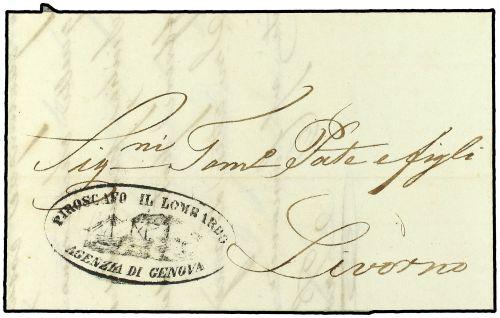 Sig.ni Tom.o Pate e figli
Livorno
PIROSCAFO IL LOMBARDO
AGENZIA DI GENOVA